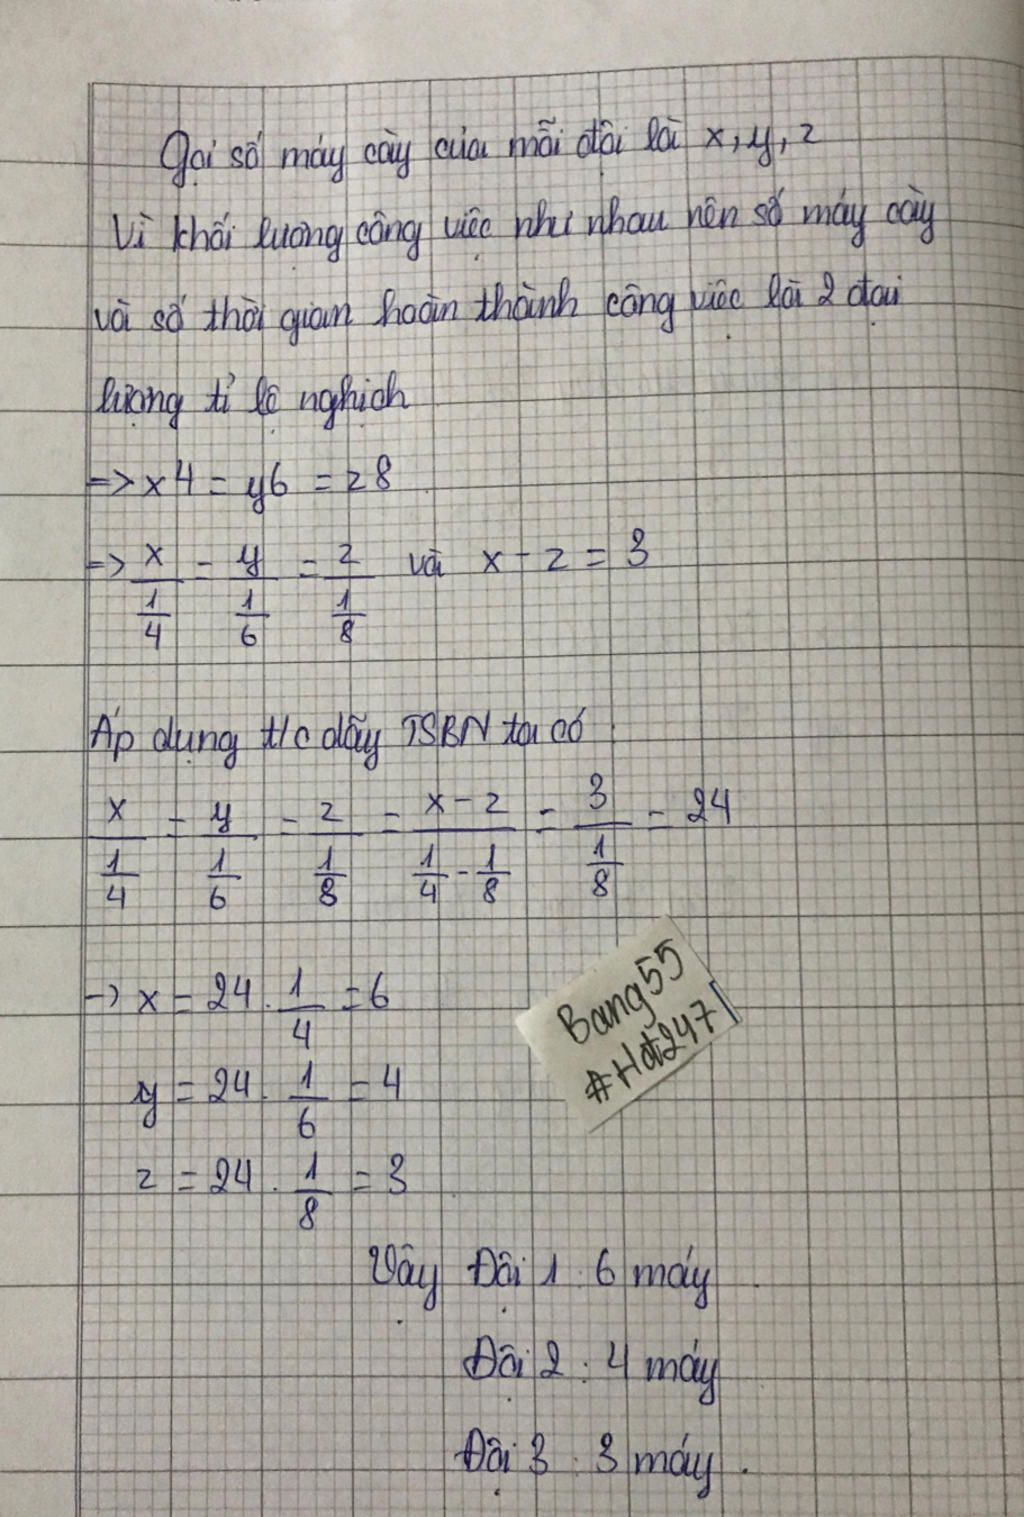 Gọi số máy cày của mỗi đội là x, y, z
Vì khối lượng công việc như nhau nên số máy cày
và số thời gian hoàn thành công việc là 2 đại
lượng tỉ lệ nghịch
=> x4 = y6 = z8
=> x/(1/4) = y/(1/6) = z/(1/8) và x - z = 3
Áp dụng t/c dãy TSBN ta có
x/(1/4) = y/(1/6) = z/(1/8) = (x - z)/(1/4 - 1/8) = 3/(1/8) = 24
-> x = 24 . 1/4 = 6
y = 24 . 1/6 = 4
z = 24 . 1/8 = 3
Bang55
#Hđ247
Vậy Đội 1 : 6 máy
Đội 2 : 4 máy
Đội 3 : 3 máy .